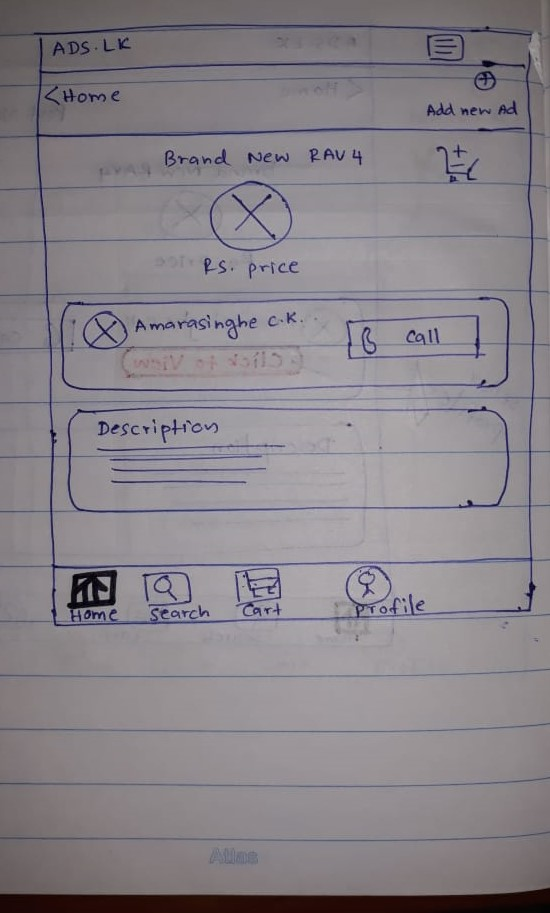 ADS.LK
<Home
Add new Ad
Brand New RAV4
RS. price
Amarasinghe C.K.
Call
(Click to View)
Description
Home
Search
Cart
Profile
Atlas